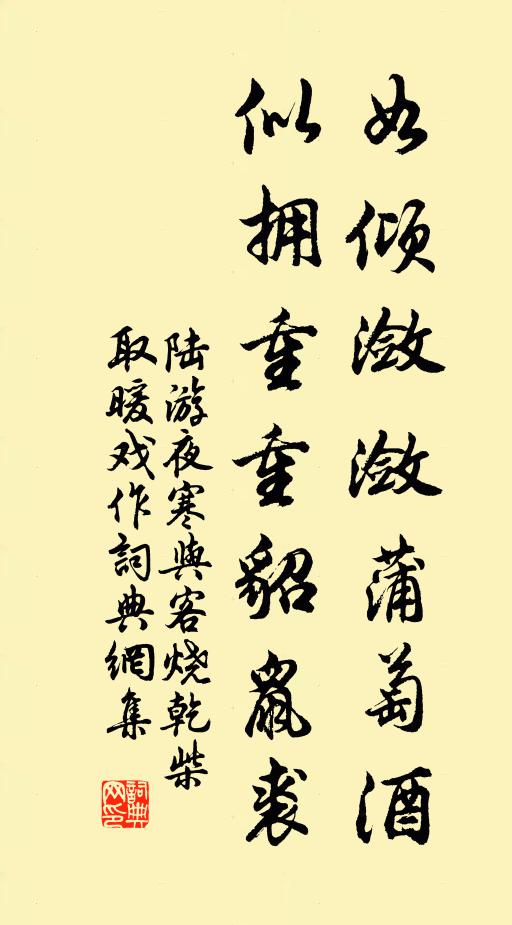 如倾潋潋蒲萄酒
似拥重重貂鼠裘
陆游夜寒与客烧乾柴
取暖戏作詞典網集
詞典网印